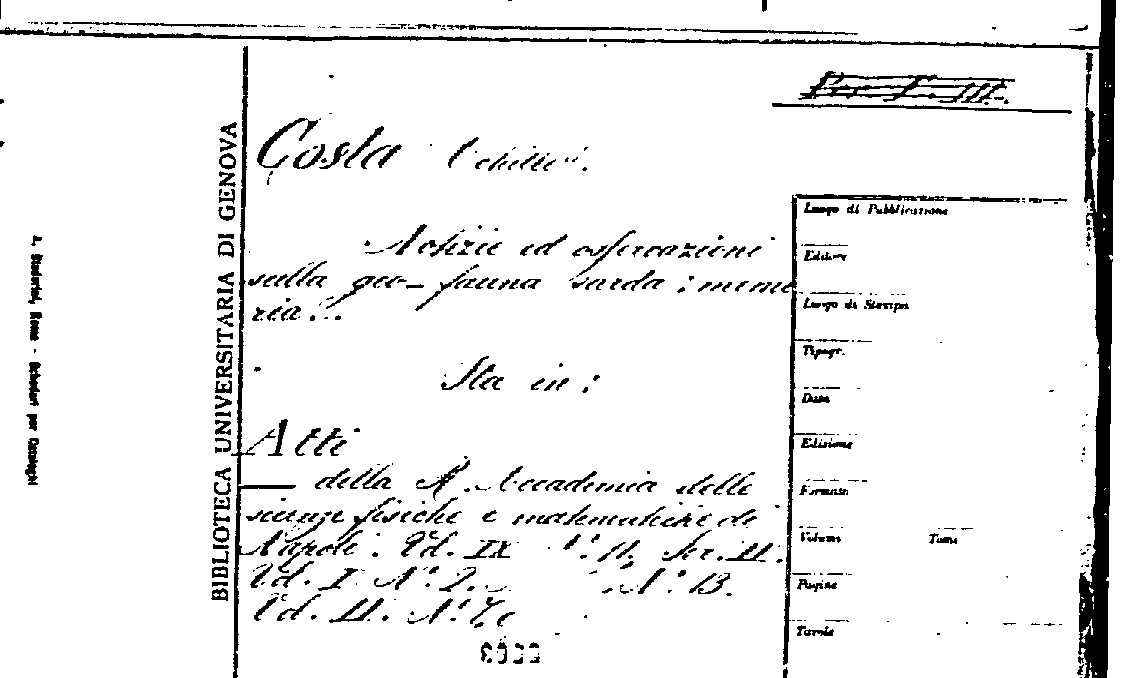 Per. T. III.
Costa Achille.
Notizie ed osservazioni
sulla geo-fauna sarda: memo
ria...
Sta in:
Atti
— della R. Accademia delle
scienze fisiche e matematiche di
Napoli. Vol. IX N.° 11, Ser. II.
Vol. I. N.° 2. N.° 13.
Vol. II. N.° 7.
BIBLIOTECA UNIVERSITARIA DI GENOVA
A. Staderini, Roma - Schedari per Cataloghi
Luogo di Pubblicazione
Editore
Luogo di Stampa
Tipogr.
Data
Edizione
Formato
Volume Tomi
Pagine
Tavole